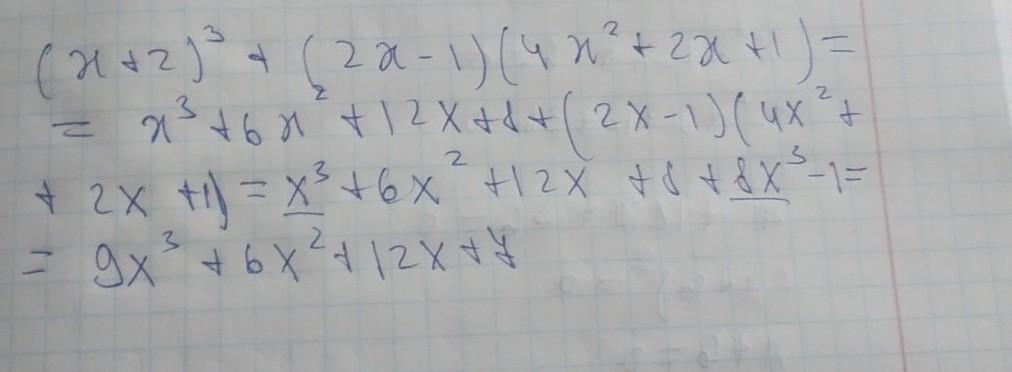 (x+2)³ + (2x-1)(4x²+2x+1)=
= x³+6x²+12x+8+(2x-1)(4x²+
+ 2x +1) = x³+6x²+12x +8+8x³-1=
= 9x³+6x²+12x+7